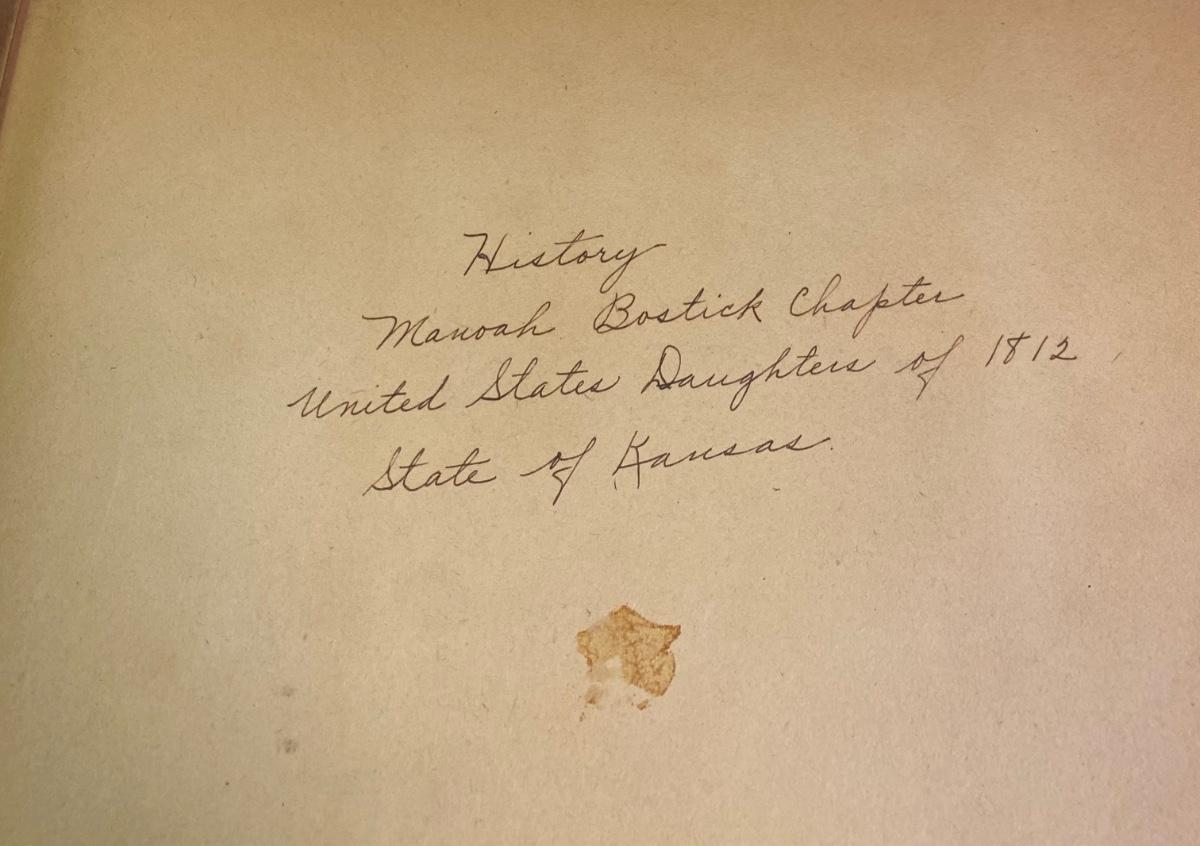 History
Manoah Bostick Chapter
United States Daughters of 1812
State of Kansas.